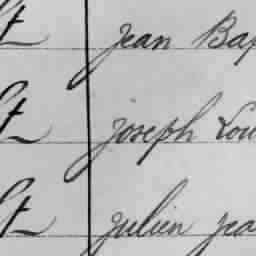 Jean Bap
Joseph Lou
Julien Jea